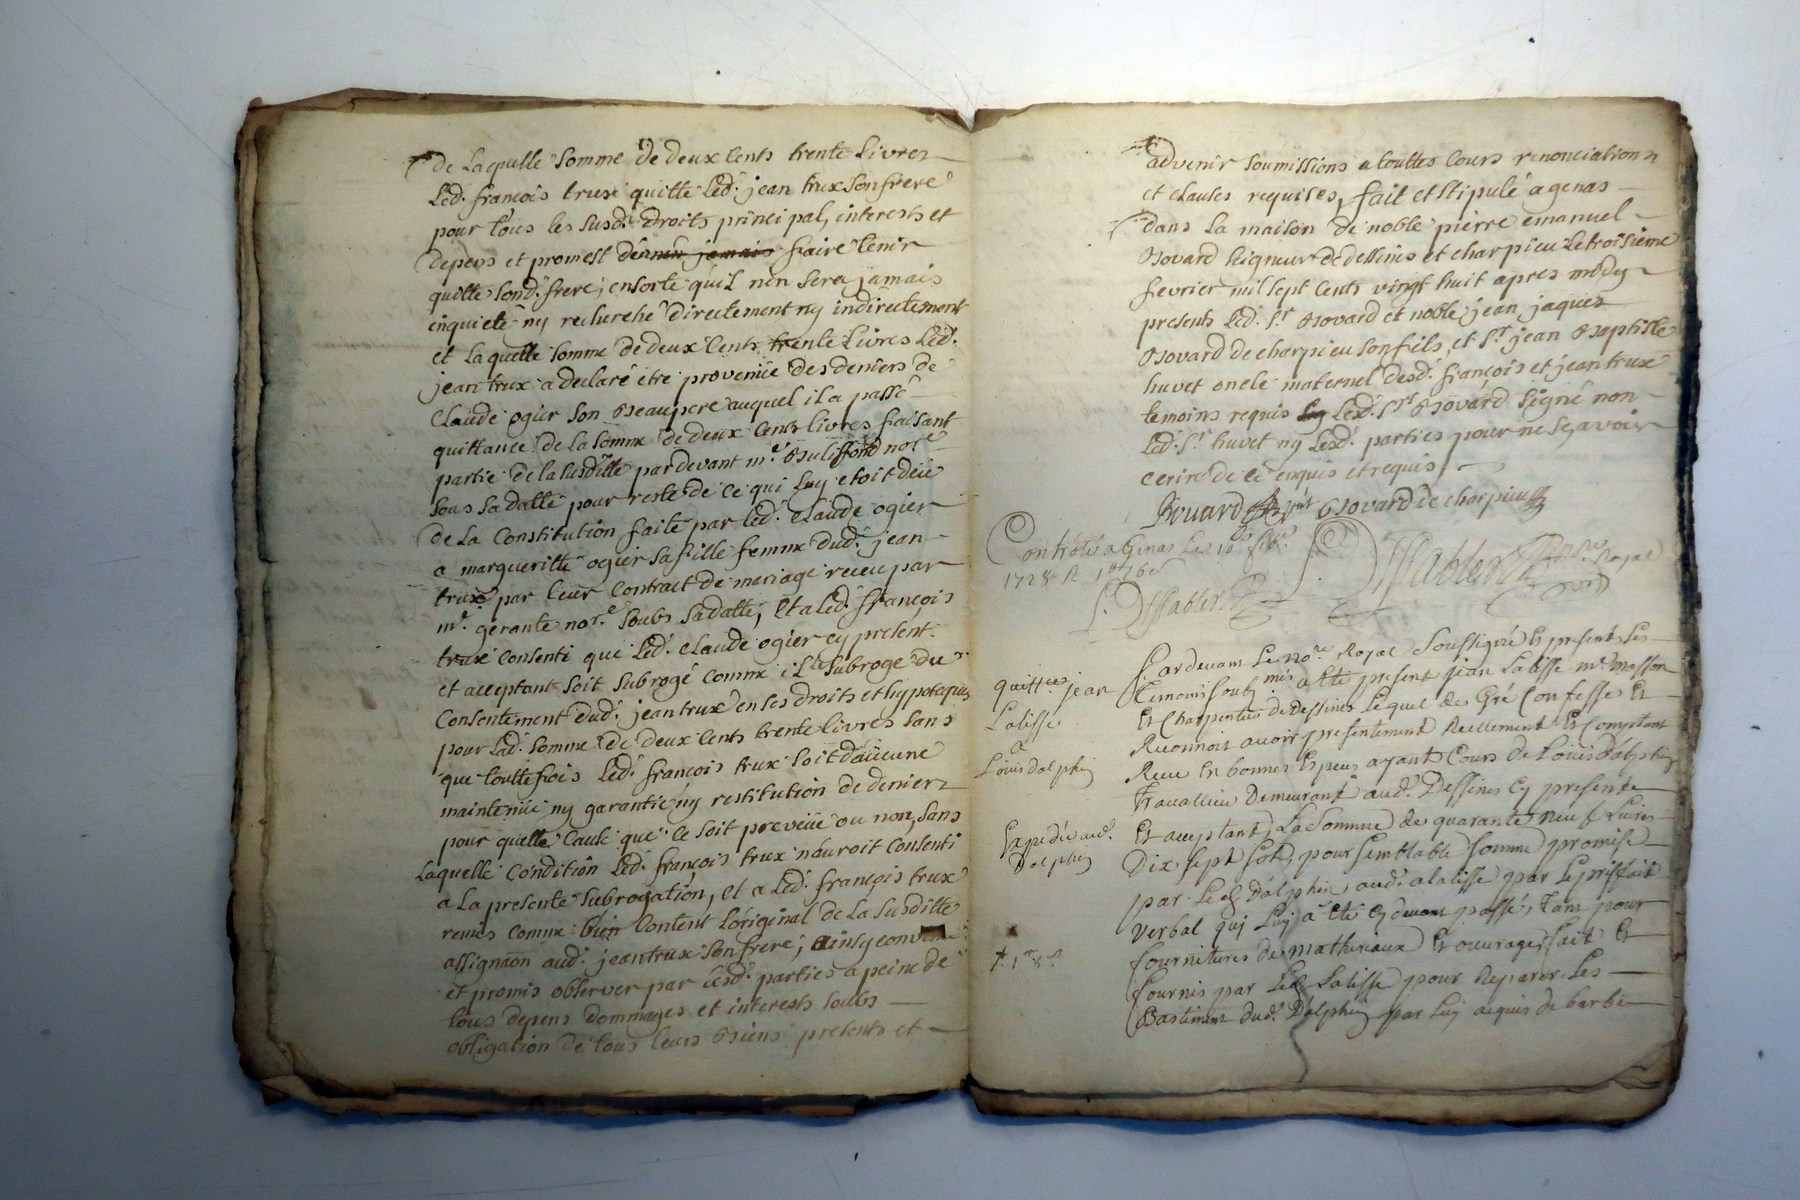 de Laquelle somme de deux cents trente livres
Led. françois trux quitte Led. jean trux son frere
pour tous les susd. droits principal, interests et
depens et promest jamais faire tenir
quitte sond. frere, ensorte qu'il n'en sera jamais
inquieté ny recherché directement ny indirectement
et Laquelle somme de deux cents trente Livres Led.
jean trux a declaré etre provenüe des deniers de
Claude ogier son Beaupere auquel il a passé
quittance de la somme de deux cents livres faisant
partie de la susditte pardevant me. not.e
sous sa datte pour reste de ce qui luy etoit deüe
de La Constitution faite par led. Claude ogier
a margueritte ogier sa fille femme dud. jean
trux par leur Contract de mariage receu par
me. gerante no.re soubs sa datte, Et a led. françois
trux consenti que Led. Claude ogier cy present
et acceptant soit subrogé comme il Le subroge du
Consentement dud. jean trux en ses droits et hypoteques
pour Lad. somme de deux cents trente livres sans
que touttefois Led. françois trux soit d'aucune
maintenüe ny garantie ny restitution de deniers
pour quelle Cause que ce soit preveüe ou non, sans
laquelle condition Led. françois trux n'auroit consenti
a La presente subrogation, et a Led. françois trux
remis comme bien content L'original de La susditte
assignaôn aud. jean trux son frere, ainsy convenu
et promis observer par lesd. parties a peine de
tous depens dommages et interests soubs
obligation de tous leurs Biens presents et
advenir soumissions a touttes Cours renonciations
et clauses requises, fait et stipulé a genas
dans La maison de noble pierre emanuel
Bovard seigneur de dessines et charpieu Le troisieme
fevrier mil sept cents vingt huit apres midy
presents Led. Sr. Bovard et noble jean jaques
Bovard de charpieu son fils, et Sr. jean Baptiste
huvet oncle maternel desd. françois et jean trux
temoins requis Lesd. Srs. Bovard signé non
Led. Sr. huvet ny Lesd. parties pour ne sçavoir
ecrire de ce enquis et requis
Bovard Bovard de charpieu
Controlé a Genas Le
1728 R
Royal
Pardevant Le no.re Royal Soussigné Et presents Les
quitt.ce jean
Lalisse
a
Louis dalphin
Temoins soub mis a eté present jean Lalisse me. masson
Et Charpentier de Dessines Lequel de Gré Confesse Et
Reconnoit avoir presentement Reellement Et Comptant
Receu En bonnes Especes ayant Cours de Louis D'alphin
Travallieur Demeurant aud. Dessines Cy present
Expedié aud.
Dalphin
Et acceptant, La Somme de quarante neuf Livres
Dix sept sols, pour semblable somme promise
par Led. D'alphin, aud. Lalisse par Le prisfait
Verbal qui Luy a eté cy devant passé, Tant pour
fournitures de mathereaux Et ouvrages fait Et
fournis par Led. Lalisse pour Reparer Les
Bastiment dud. D'alphin par Luy acquis de barbe